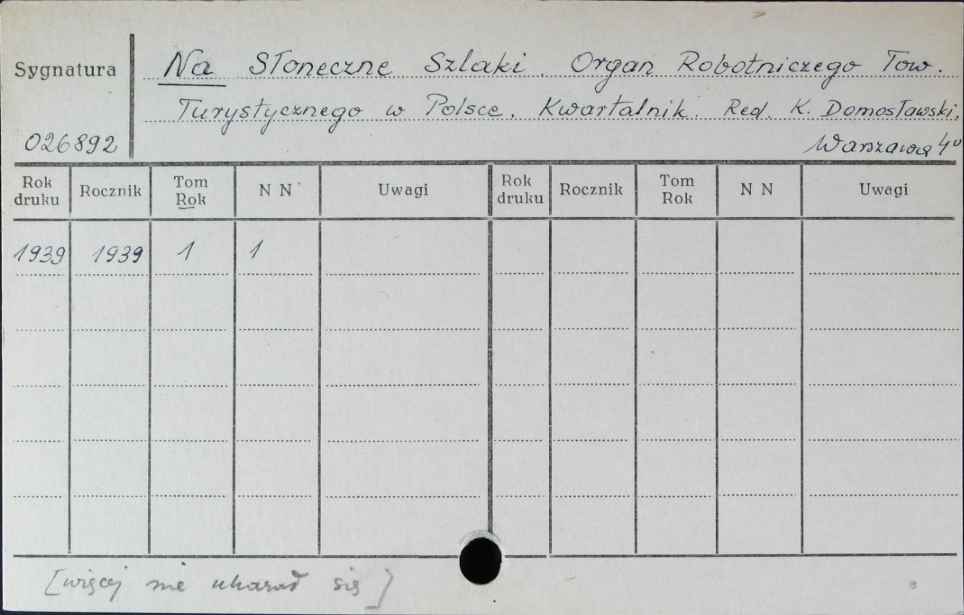 Sygnatura
Na Słoneczne Szlaki. Organ Robotniczego Tow.
Turystycznego w Polsce. Kwartalnik. Red. K. Domosławski,
026892
Warszawa 4°
Rok druku Rocznik Tom Rok N N Uwagi Rok druku Rocznik Tom Rok N N Uwagi
1939 1939 1 1
[więcej nie ukazał się]